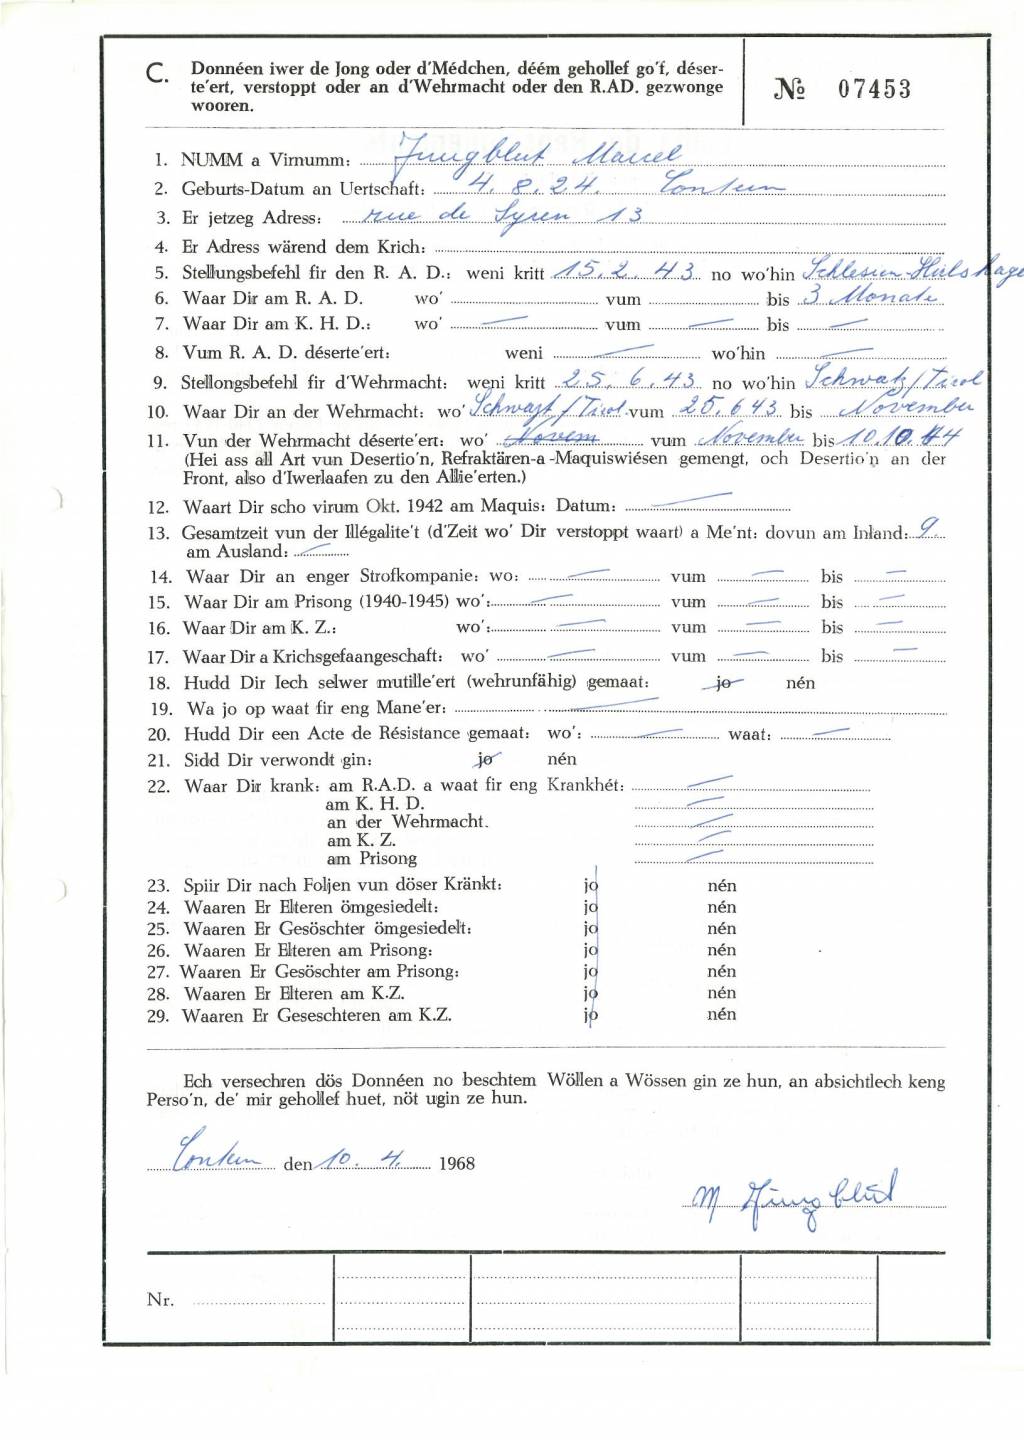 C. Donnéen iwer de Jong oder d'Médchen, déém gehollef go'f, déser-
te'ert, verstoppt oder an d'Wehrmacht oder den R.AD. gezwonge
wooren.
№ 07453
1. NUMM a Virnumm: Jungblut Marcel
2. Geburts-Datum an Uertschaft: 4. 8. 24. Contern
3. Er jetzeg Adress: rue de Syren 13
4. Er Adress wärend dem Krich:
5. Stellungsbefehl fir den R. A. D.: weni kritt 15.2.43 no wo'hin Schlesien-
6. Waar Dir am R. A. D. wo' vum bis 3 Monate
7. Waar Dir am K. H. D.: wo' — vum — bis —
8. Vum R. A. D. déserte'ert: weni — wo'hin —
9. Stellongsbefehl fir d'Wehrmacht: weni kritt 25. 6. 43 no wo'hin Schwatz/Tirol
10. Waar Dir an der Wehrmacht: wo' Schwazt/Tirol vum 25.6 43 bis November
11. Vun der Wehrmacht déserte'ert: wo' Novem vum November bis 10.10.44
(Hei ass all Art vun Desertio'n, Refraktären-a -Maquiswiésen gemengt, och Desertio'n an der
Front, also d'Iwerlaafen zu den Allie'erten.)
12. Waart Dir scho virum Okt. 1942 am Maquis: Datum: —
13. Gesamtzeit vun der Illégalite't (d'Zeit wo' Dir verstoppt waart) a Me'nt: dovun am Inland: 9
am Ausland: —
14. Waar Dir an enger Strofkompanie: wo: — vum — bis —
15. Waar Dir am Prisong (1940-1945) wo': — vum — bis —
16. Waar Dir am K. Z.: wo': — vum — bis —
17. Waar Dir a Krichsgefaangeschaft: wo' — vum — bis —
18. Hudd Dir Iech selwer mutille'ert (wehrunfähig) gemaat: jo nén
19. Wa jo op waat fir eng Mane'er: —
20. Hudd Dir een Acte de Résistance gemaat: wo': — waat: —
21. Sidd Dir verwondt gin: jo nén
22. Waar Dir krank: am R.A.D. a waat fir eng Krankhét: —
am K. H. D. —
an der Wehrmacht. —
am K. Z. —
am Prisong —
23. Spiir Dir nach Foljen vun döser Kränkt: jo nén
24. Waaren Er Elteren ömgesiedelt: jo nén
25. Waaren Er Gesöschter ömgesiedelt: jo nén
26. Waaren Er Elteren am Prisong: jo nén
27. Waaren Er Gesöschter am Prisong: jo nén
28. Waaren Er Elteren am K.Z. jo nén
29. Waaren Er Geseschteren am K.Z. jo nén
Ech versechren dös Donnéen no beschtem Wöllen a Wössen gin ze hun, an absichtlech keng
Perso'n, de' mir gehollef huet, nöt ugin ze hun.
Contern den 10. 4. 1968
M Jungblut
Nr.